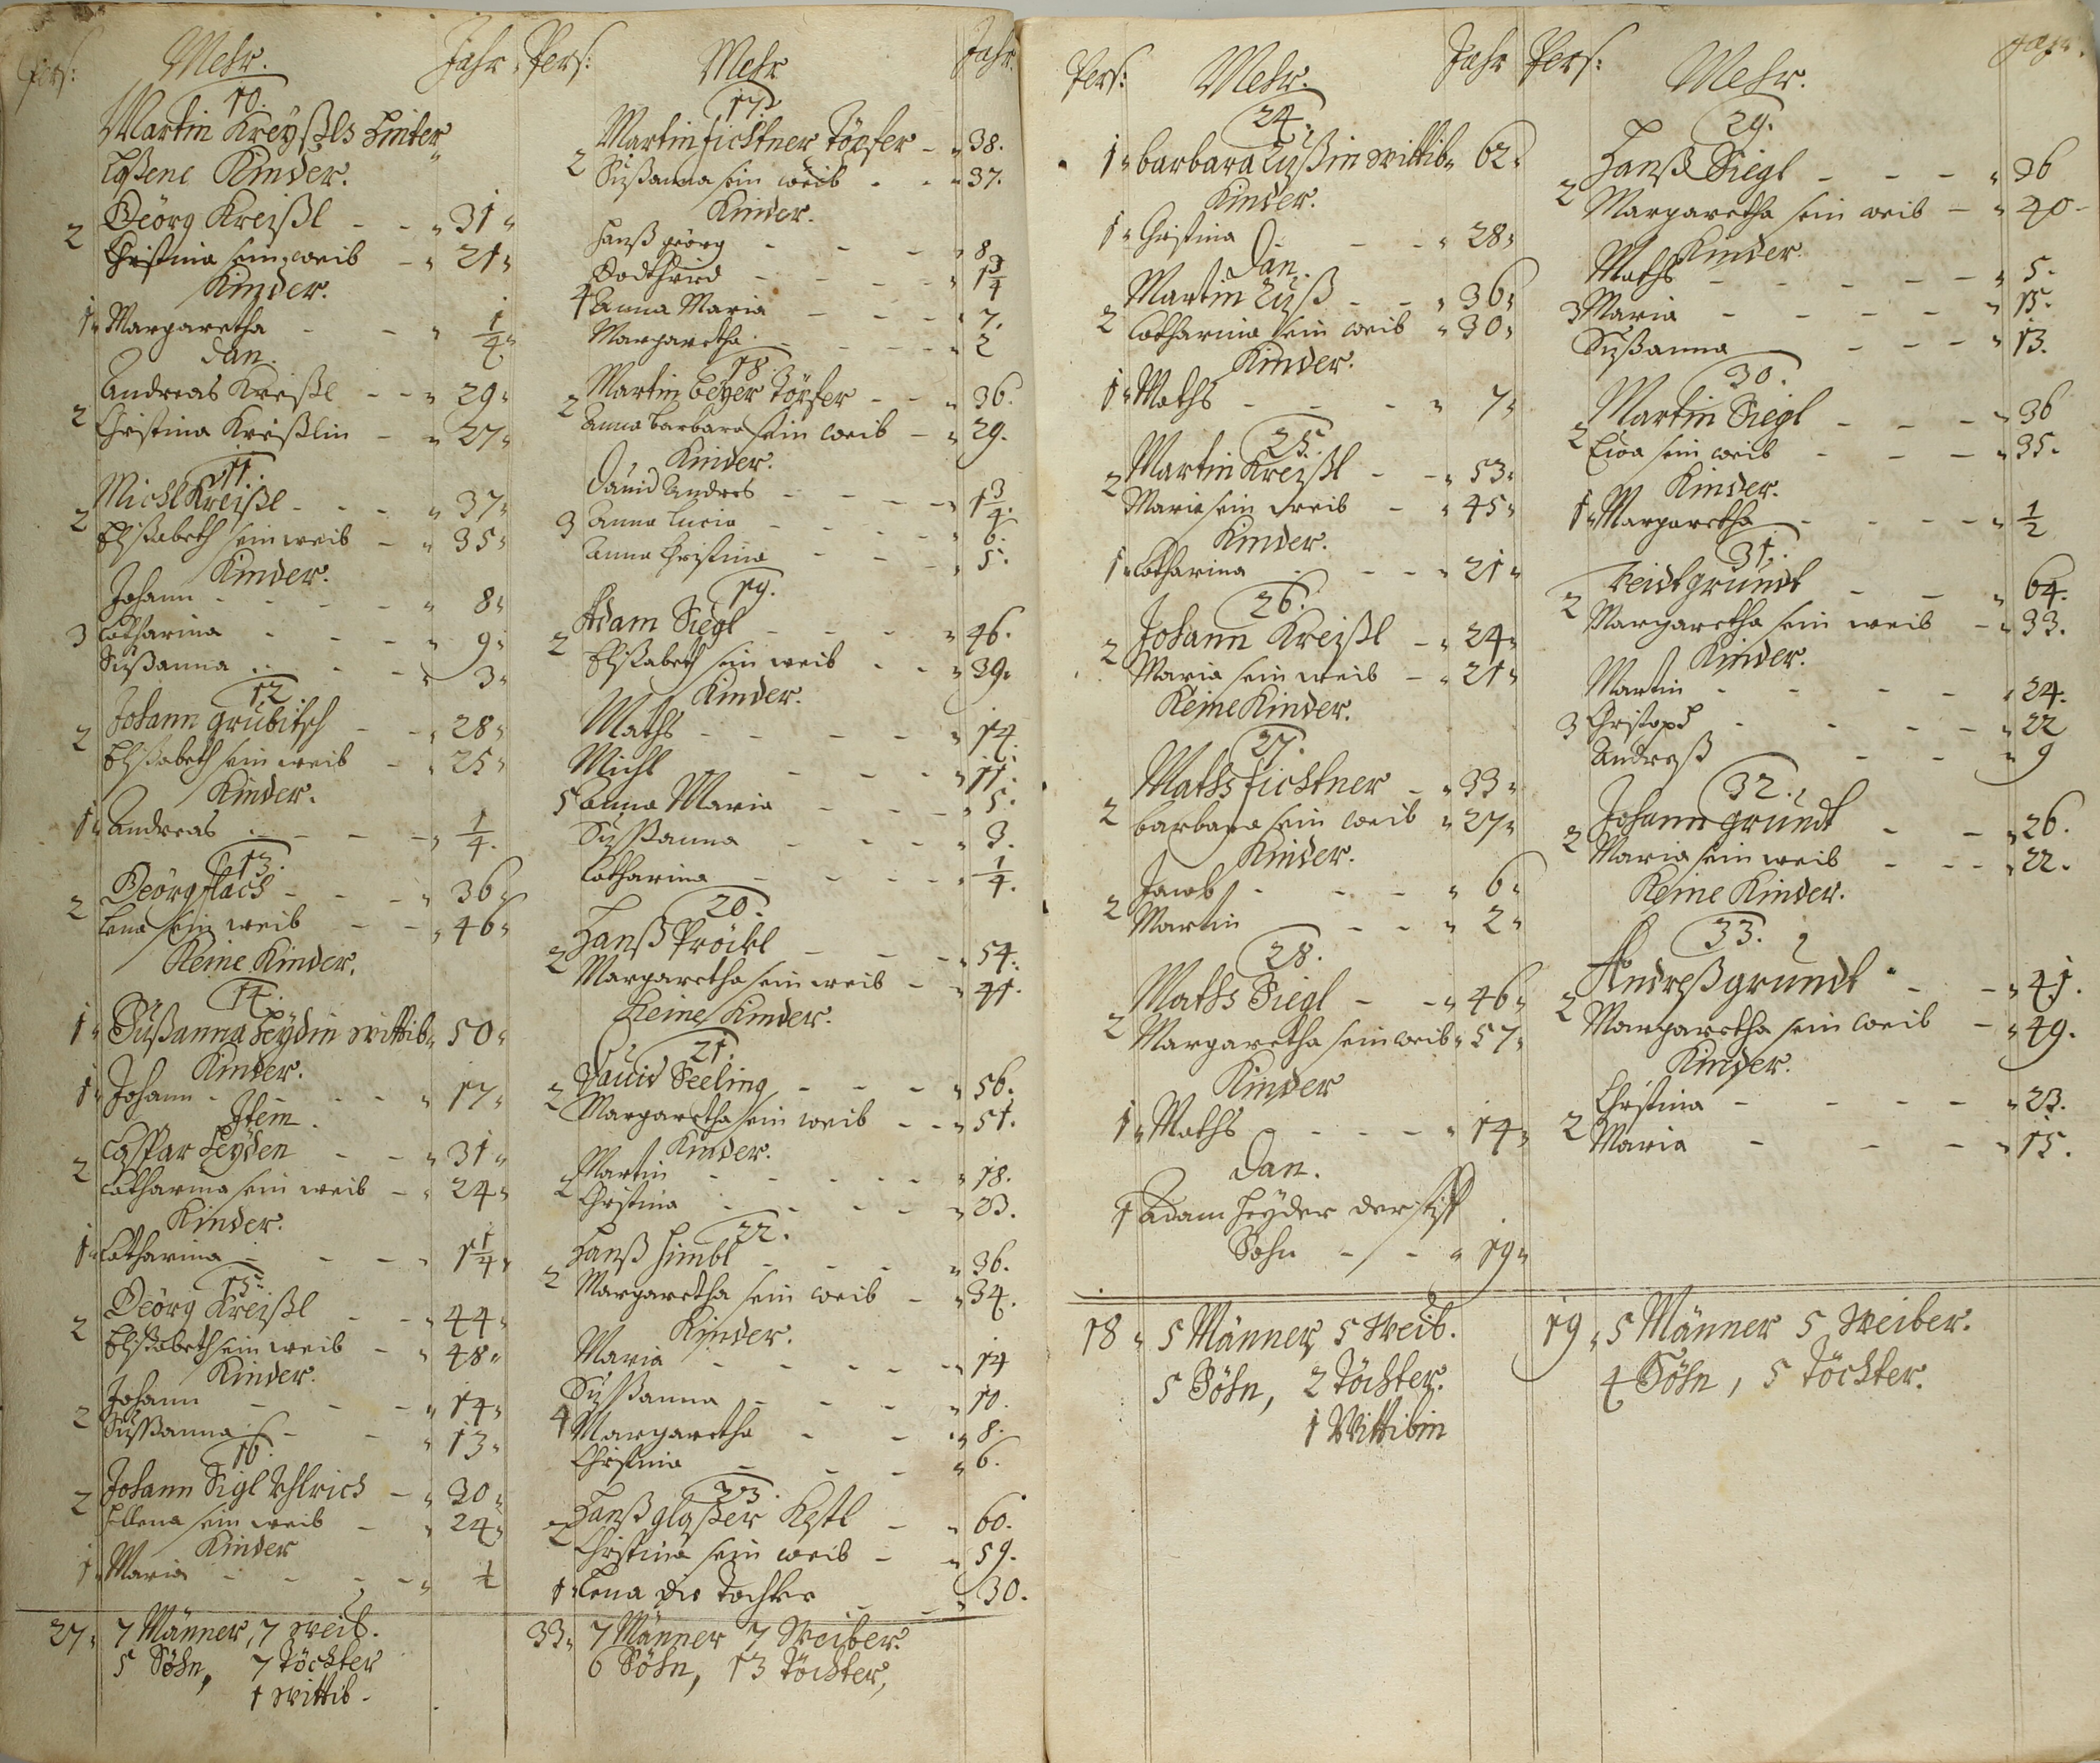 Pers: Mehr. Jahr
10.
Martin Kreyßls Hinter
laßene Kinder.
2 Geörg Kreißl - - 31
Christina sein weib - 21
Kinder.
1 Margaretha - - 1/4
Dan.
2 Andreas Kreißl - - 29
Christina Kreißlin - 27
11.
2 Michl Kreißl - - - 37
Elisabeth sein weib - 35
Kinder.
Johann - - - - 8
3 Catharina - - - 9
Sußanna - - - 3
12.
2 Johann Grubitsch - - 28
Elisabeth sein weib - 25
Kinder.
1 Andreas - - - - 1/4.
13.
2 Geörg flach - - - 36
Lena sein weib - - 46
Keine Kinder.
14.
1 Sußanna Heydin Wittib 50
Kinder.
1 Johann - - - - 17
Item.
2 Caspar Heyden - - 31
Catharina sein weib - 24
Kinder.
1 Catharina - - - 1 1/4
15.
2 Geörg Kreißl - - 44
Elisabeth sein weib - 48
Kinder.
2 Johann - - - - 14
Sußanna - - - 13
16.
2 Johann Sigl Uhlrich - 30
Hellena sein weib - 24
Kinder
1 Maria - - - - 1/2
27 7 Männer, 7 Weib.
5 Söhn, 7 Töchter
1 Wittib
Pers: Mehr Jahr
17.
2 Martin fichtner Töpfer - 38.
Sußanna sein weib - - 37.
Kinder.
Hanß geörg - - - 8
Godthfrid - - - - 1 3/4
4 Anna Maria - - - 7.
Margaretha - - - - 2
18.
2 Martin Beyer Töpfer - - 36.
Anna barbara sein weib - 29.
Kinder.
David Andres - - - 1 3/4.
3 Anna Lucia - - - - 6.
Anna Christina - - - 5.
19.
2 Adam Siegl - - - - 46.
Elisabeth sein weib - - 39.
Kinder.
Maths - - - - - 14.
Michl - - - - 11.
5 Anna Maria - - - 5.
Sußanna - - - 3.
Catharina - - - - 1/4.
20.
2 Hanß Pröckl - - - 54.
Margaretha sein weib - 41.
Keine Kinder.
21.
2 David Seeling - - - 56.
Margaretha sein weib - - 51.
Kinder.
2 Martin - - - - - 18.
Christina - - - - 23.
22.
2 Hanß Himbl - - - 36.
Margaretha sein weib - 34.
Kinder.
Maria - - - - - 14
Sußanna - - - - 10.
4 Margaretha - - - 8.
Christina - - - 6.
23.
2 Hanß glaßer - - 60.
Christina sein weib - 59.
1 Lena die Tochter - - 30.
33 7 Männer 7 Weiber.
6 Söhn, 13 Töchter,
Pers: Mehr. Jahr
24.
1 barbara Zußin Wittib 62
Kinder.
1 Christina - - - 28
Dan.
2 Martin Zuß - - 36
Catharina sein weib 30
Kinder.
1 Maths - - - - 7
25.
2 Martin Kreißl - - 53
Maria sein weib - 45
Kinder.
1 Catharina - - - 21
26.
2 Johann Kreißl - 24
Maria sein weib - 21
Keine Kinder.
27.
2 Maths fichtner - 33
barbara sein weib 27
Kinder.
2 Jacob - - - 6
Martin - - 2
28.
2 Maths Siegl - - 46
Margaretha sein weib 57
Kinder
1 Maths - - - - 14
Dan.
1 Adam Heyder der stiff
Sohn - - 19
18 5 Männer, 5 Weib.
5 Söhn, 2 Töchter.
1 Wittibin
Pers: Mehr. Jahr.
29.
2 Hanß Siegl - - - 36
Margaretha sein weib - 40
Kinder.
Maths - - - - - 5.
3 Maria - - - - - 15.
Sußanna - - - 13.
30.
2 Martin Siegl - - - 36
Eiva sein weib - - - 35.
Kinder.
1 Margaretha - - - - 1/2
31.
2 Veidt grundt - - 64.
Margaretha sein weib - 33.
Kinder.
Martin - - - - 24.
3 Christoph - - - - 22
Andreß - - 9
32.
2 Johann grundt - - 26.
Maria sein weib - - - 22.
Keine Kinder.
33.
2 Andreß grundt - - 41.
Margaretha sein weib - 49.
Kinder.
2 Christina - - - - 23.
Maria - - - 15.
19 5 Männer 5 Weiber.
4 Söhn, 5 Töchter.